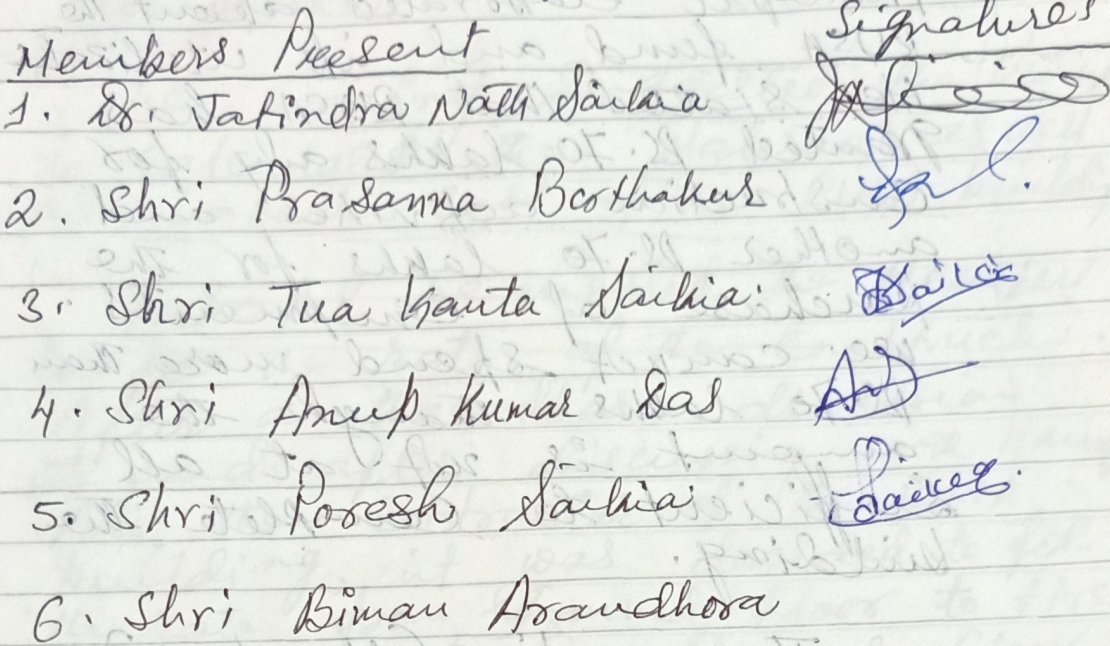 Members Present Signatures
1. Dr. Jatindra Nath Saikia
2. Shri Prasanna Borthakur
3. Shri Tua Kanta Saikia. Saikia
4. Shri Anup Kumar Das
5. Shri Poresh Saikia Saikia.
6. Shri Biman Arandhora